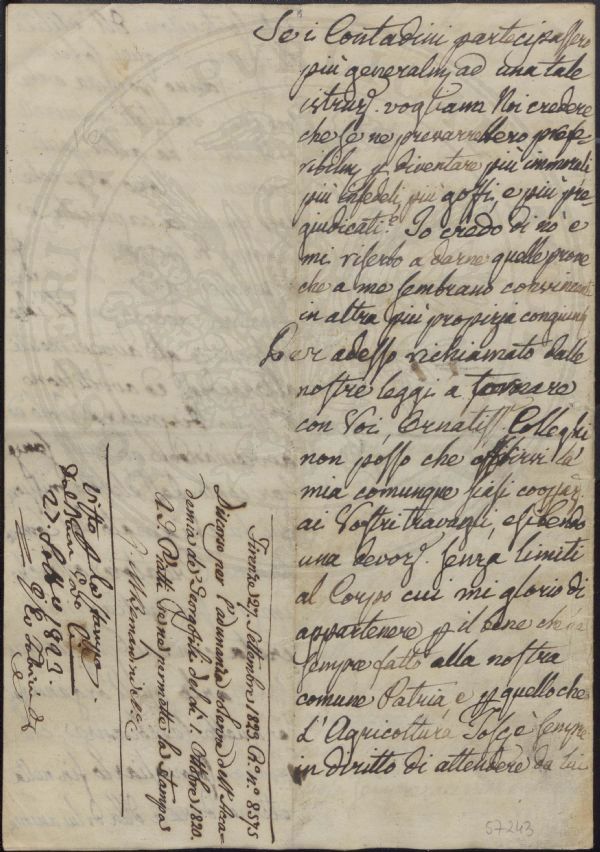 Se i Contadini partecipassero
più generalm. ad una tale
istruz. vogliam Noi credere
che se ne prevarrebbero prefe-
ribilm. p diventare più immorali
più infedeli, più goffi, e più pre-
giudicati? Io credo di nò e
mi riserbo a darne quelle prove
che a me sembrano convincenti
in altra più propizia
Per adesso richiamato dalle
nostre leggi a tornare
con Voi, Ornatiss. Colleghi
non posso che offrirvi la
mia comunque siasi cooperaz.
ai Vostri travagli, esibendo
una devoz. senza limiti
al Corpo cui mi glorio di
appartenere p il bene che ha
sempre fatto alla nostra
comune Patria e p quello che
l'Agricoltura Tosc. è sempre
in diritto di attendere da lui
Firenze 27. Settembre 1823. R. n.° 8575
Discorso per l'adunanza solenne dell'Acca-
demia de' Georgofili del dì 1. Ottobre 1820.
Visto p la stampa
27
57243